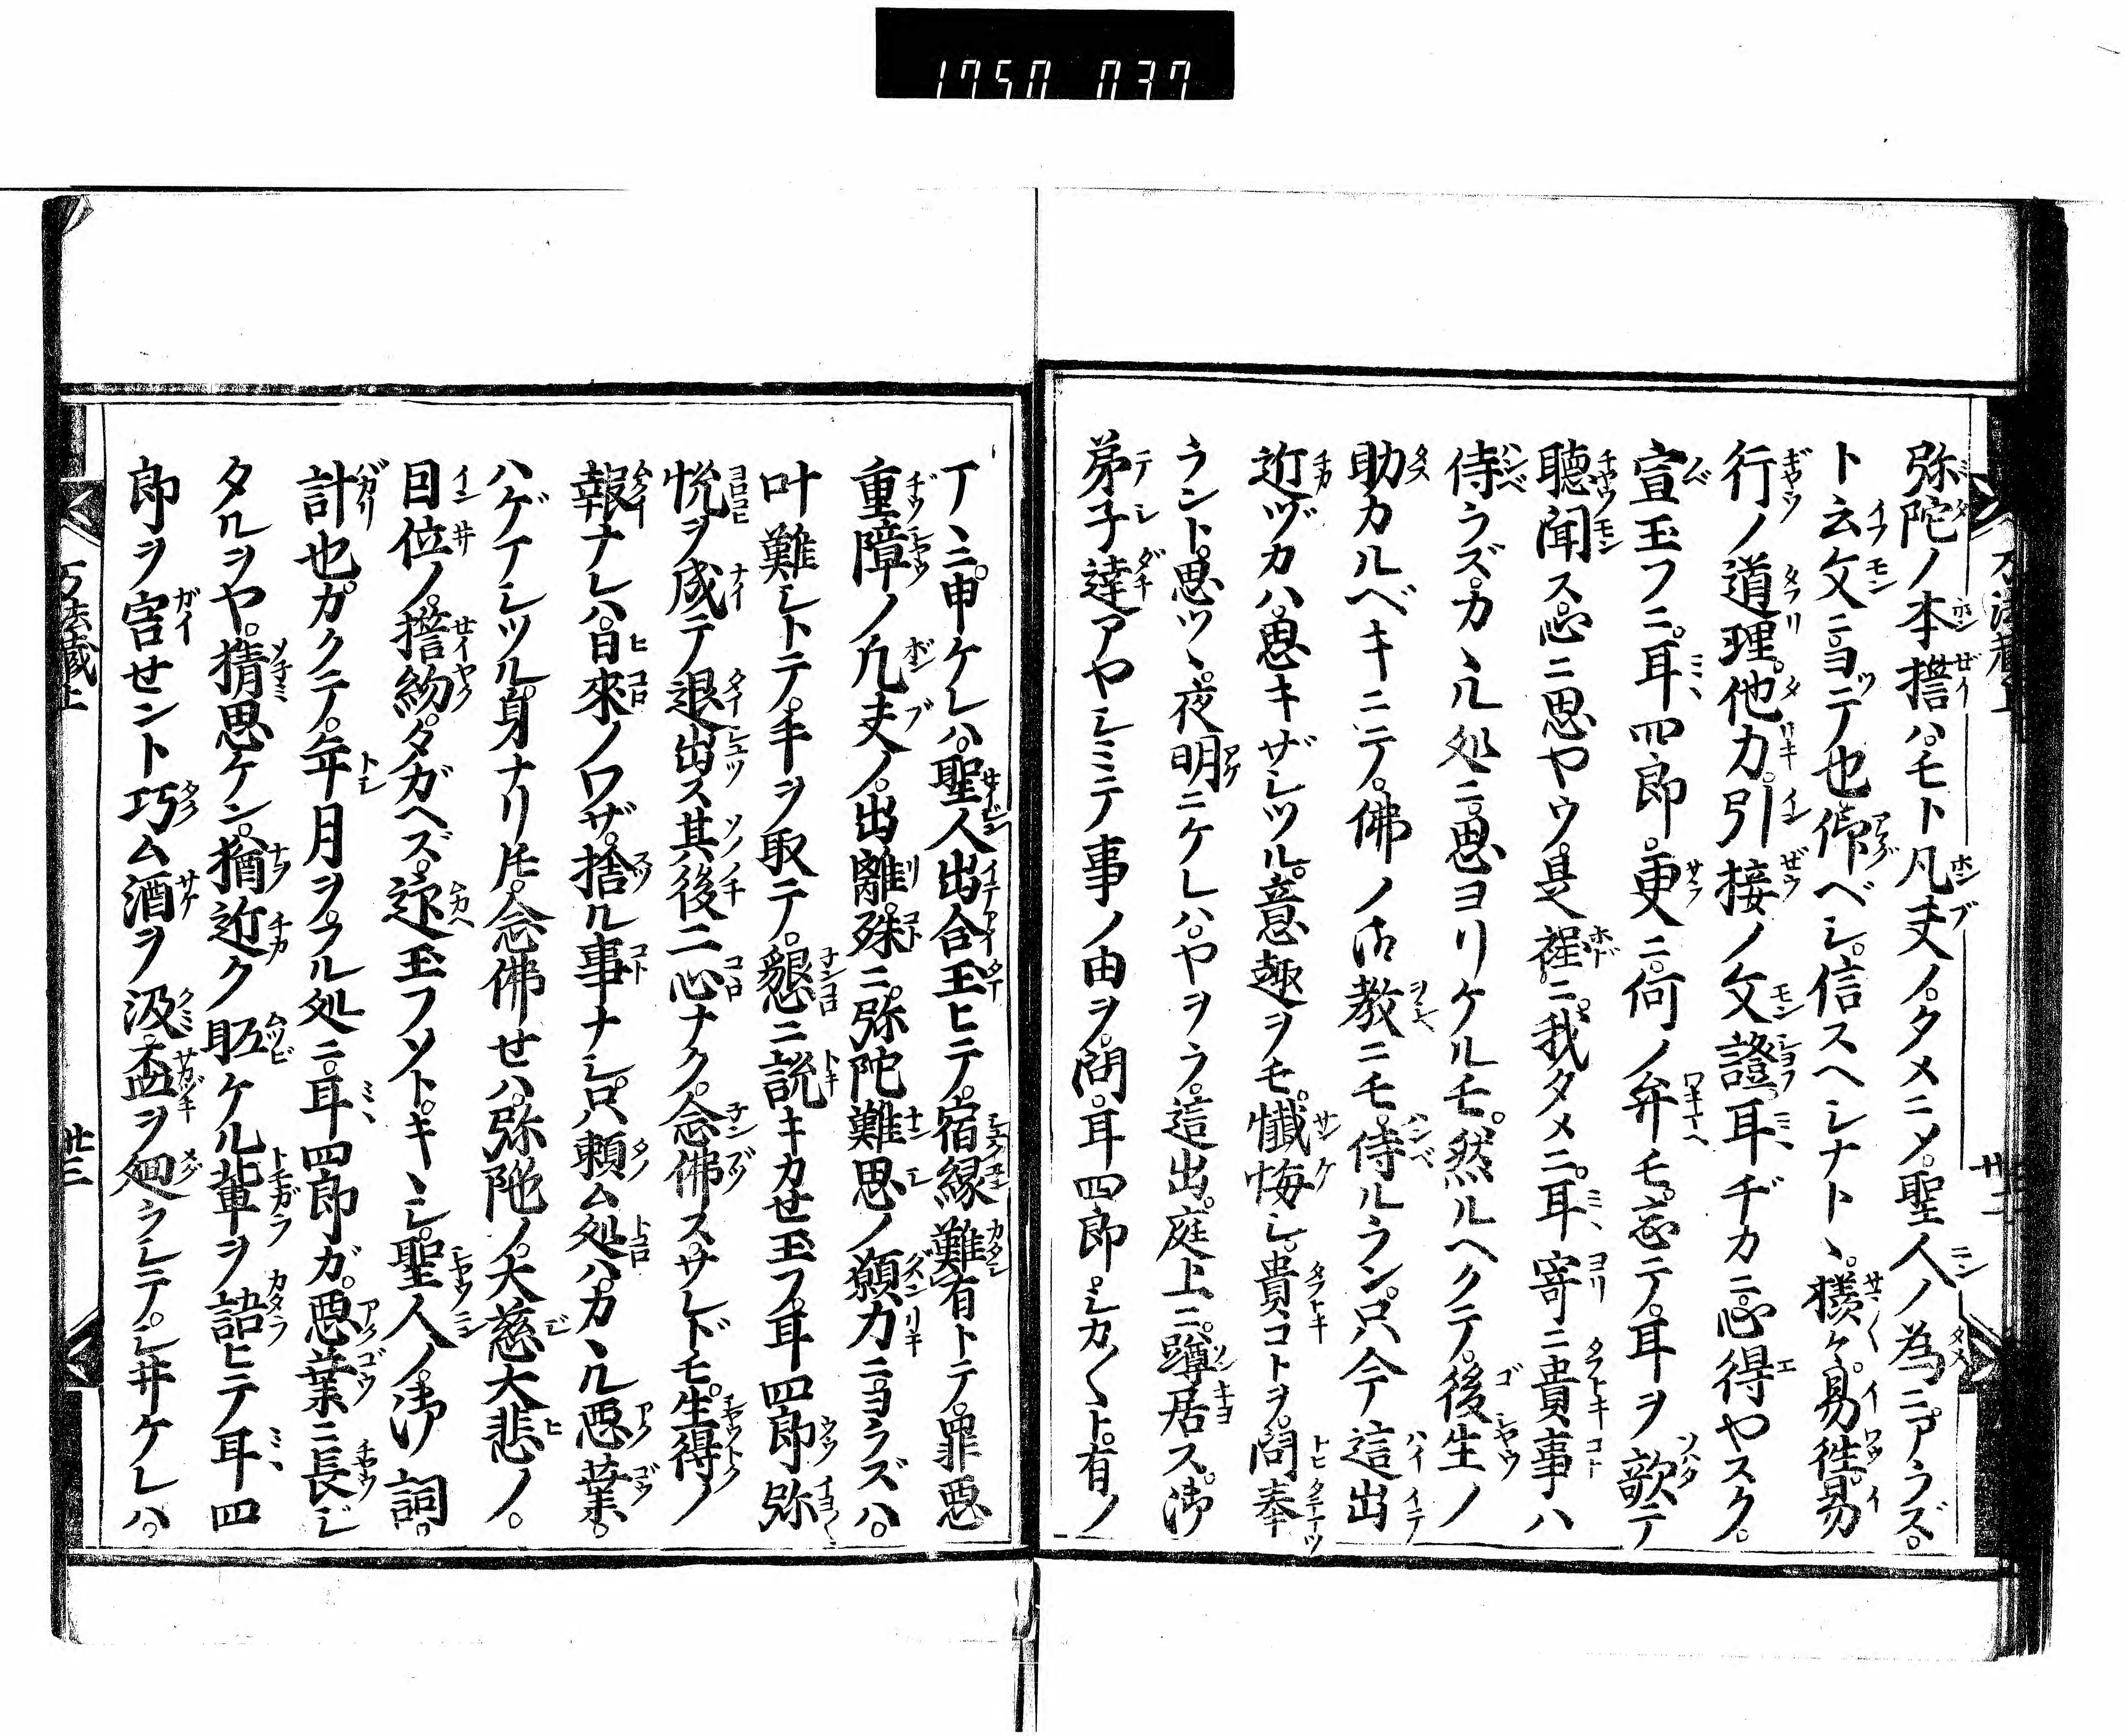 1750 037
弥陀ノ本誓ハ。モト凡夫ノ。タメニソ。聖人ノ為ニ。アラズ。
ト云文ニ。ヨテ也仰ベシ。信スヘシナト、。様々。易往易
行ノ道理。他力。引接ノ文證。耳ヂカニ。心得ヤスク。
宣玉フニ。耳四郎。更ニ。何ノ弁モ。忘テ。耳ヲ歃テ
聴聞ス。心ニ思ヤウ。是程ニ。我タメニ。耳寄ニ貴事ハ
侍ラズ。カヽル処ニ。思ヨリケルモ。然ルヘクテ。後生ノ
助カルベキニテ。佛ノ御教ニモ。侍ルラン。只今這出
近ヅカハ。思キザシツル。意趣ヲモ。懺悔シ。貴コトヲ。問奉
ラント。思ツヽ。夜明ニケレハ。ヤヲラ。這出。庭上ニ。蹲居ス。御
弟子達アヤシミテ事ノ由ヲ。問。耳四郎。シカ〱ト。有ノ
廿二
丁ヽニ。申ケレハ。聖人出合玉ヒテ。宿縁難有トテ。罪悪
重障ノ凡夫ノ。出離。殊ニ。弥陀難思ノ願力ニヨラズハ。
叶難シトテ。手ヲ取テ。懇ニ説キカせ玉フ。耳四郎弥
悦ヲ成テ退出ス其後二心ナク。念佛ス。サレドモ。生得ノ
報ナレハ。日來ノワザ。捨ル事ナシ。只頼ム処ハ。カヽル悪業。
ハゲアシツル。身ナリ𪜈。念佛せハ。弥陀ノ。大慈大悲ノ。
因位ノ。誓約。タガヘズ。迎玉フソト。キヽシ。聖人ノ。御詞。
計也。カクテ。年月ヲ。フル処ニ。耳四郎ガ。悪業ニ長ジ
タルヲヤ。猜思ケン。猶近ク眤ケル輩ヲ語ヒテ耳四
郎ヲ害せント巧ム酒ヲ汲。盃ヲ廻ラシテ。シ井ケレハ。
法蔵上
廿三